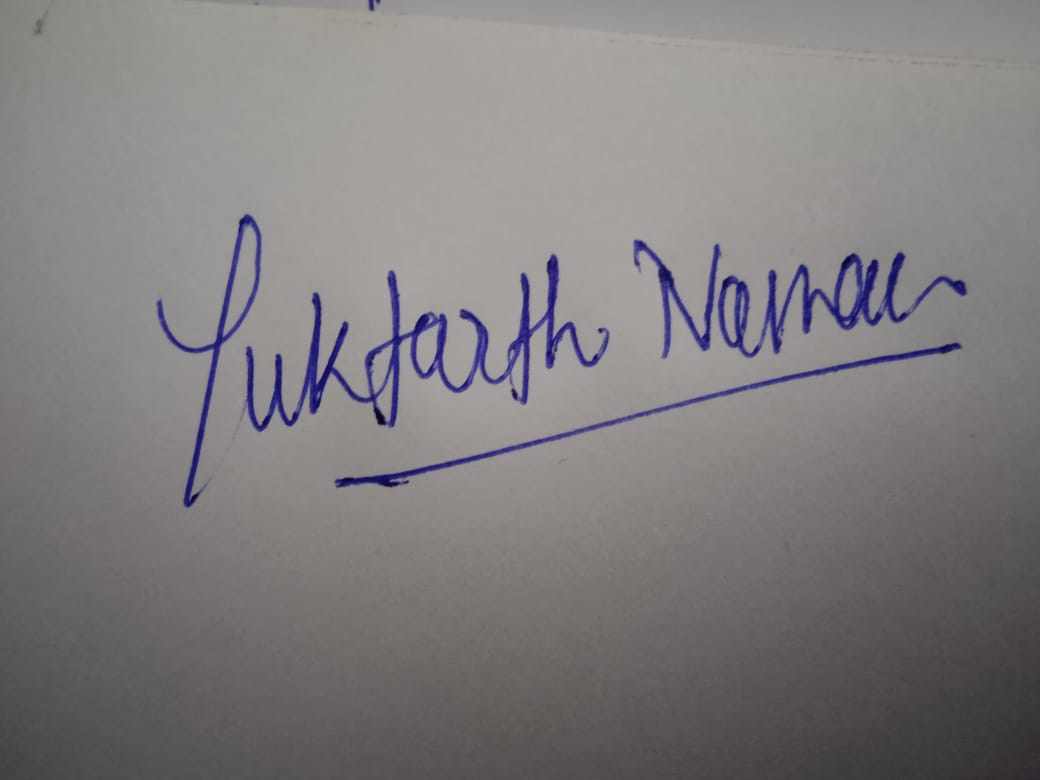 Yuktarth Naman